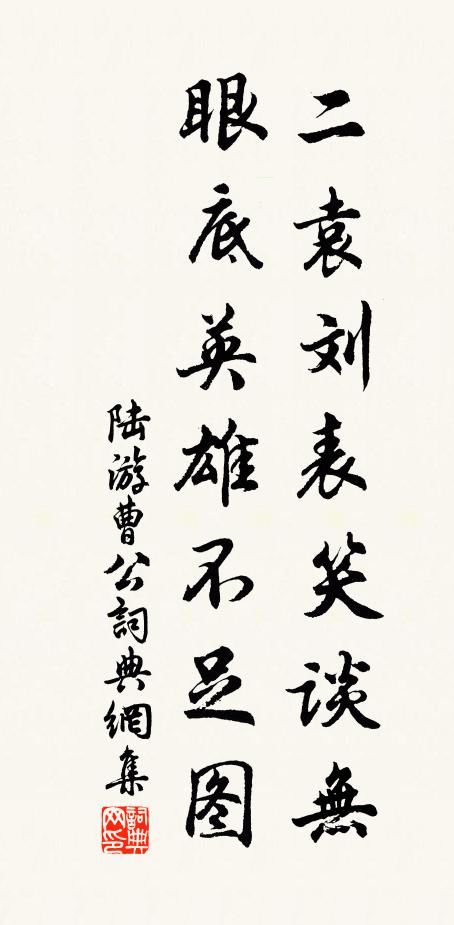 二袁刘表笑谈無
眼底英雄不足图
陆游曹公詞典網集
詞典网印